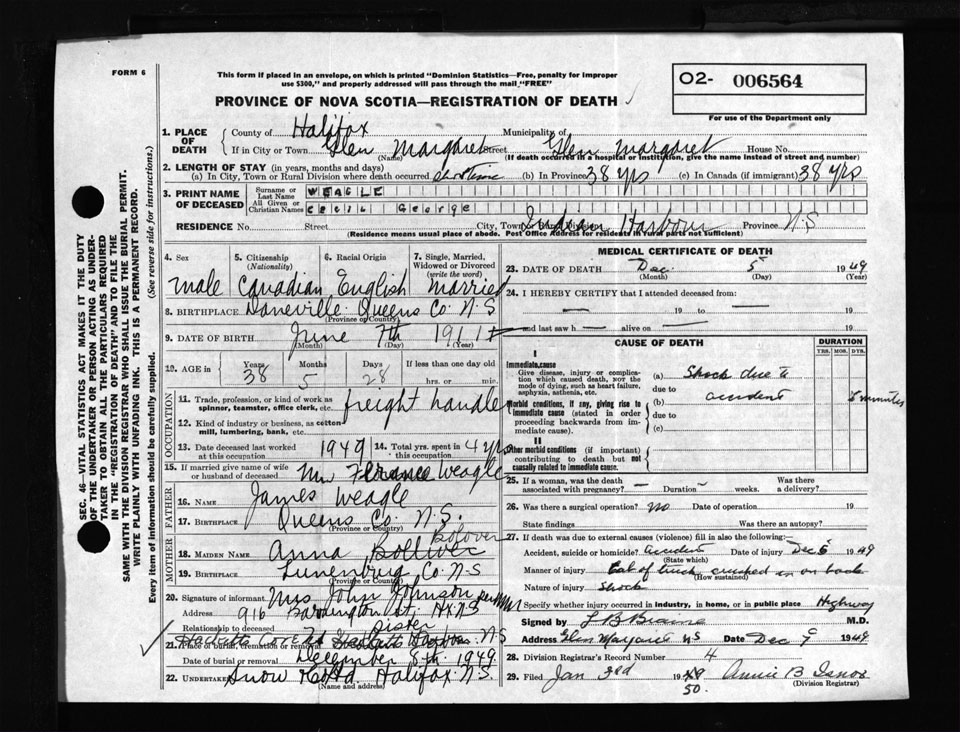 FORM 6
This form if placed in an envelope, on which is printed "Dominion Statistics—Free, penalty for improper
use $300," and properly addressed will pass through the mail "FREE"
O2- 006564
For use of the Department only
PROVINCE OF NOVA SCOTIA—REGISTRATION OF DEATH
SEC. 46—VITAL STATISTICS ACT MAKES IT THE DUTY
OF THE UNDERTAKER OR PERSON ACTING AS UNDER-
TAKER TO OBTAIN ALL THE PARTICULARS REQUIRED
IN THE "REGISTRATION OF DEATH" AND TO FILE THE
SAME WITH THE DIVISION REGISTRAR WHO SHALL ISSUE THE BURIAL PERMIT.
WRITE PLAINLY WITH UNFADING INK. THIS IS A PERMANENT RECORD.
Every item of information should be carefully supplied. (See reverse side for instructions.)
1. PLACE OF DEATH County of Halifax Municipality of
If in City or Town Glen Margaret Street Glen Margaret House No.
(Name) (If death occurred in a hospital or institution, give the name instead of street and number)
2. LENGTH OF STAY (in years, months and days)
(a) In City, Town or Rural Division where death occurred short time (b) In Province 38 yrs (c) In Canada (if immigrant) 38 yrs
3. PRINT NAME OF DECEASED Surname or Last Name WEAGLE
All Given or Christian Names Cecil George
RESIDENCE No. Street City, Town or Rural Division Indian Harbour Province N.S
(Residence means usual place of abode. Post Office Address for residents in rural parts not sufficient)
4. Sex 5. Citizenship (Nationality) 6. Racial Origin 7. Single, Married, Widowed or Divorced (write the word)
male Canadian English Married
8. BIRTHPLACE Daneville Queens Co. N.S
(Province or Country)
9. DATE OF BIRTH June 7th 1911
(Month) (Day) (Year)
10. AGE in Years Months Days If less than one day old
38 5 28 hrs. or min.
OCCUPATION
11. Trade, profession, or kind of work as spinner, teamster, office clerk, etc. freight handler
12. Kind of industry or business, as cotton mill, lumbering, bank, etc.
13. Date deceased last worked at this occupation 1949 14. Total yrs. spent in this occupation 4 yrs
15. If married give name of wife or husband of deceased Weagle
FATHER
16. NAME James Weagle
17. BIRTHPLACE Queens Co. N.S.
(Province or Country)
MOTHER
Bolover
18. MAIDEN NAME Anna Bolliver
19. BIRTHPLACE Lunenburg Co N.S
(Province or Country)
20. Signature of informant Mrs John Johnson
Address 916 Barrington St. Hx N.S
Relationship to deceased Sister
21. Place of burial, cremation or removal N.S
Date of burial or removal December 8th 1949
22. UNDERTAKER Snow & Co Ltd. Halifax N.S.
(Name and address)
MEDICAL CERTIFICATE OF DEATH
23. DATE OF DEATH Dec. 5 1949
(Month) (Day) (Year)
24. I HEREBY CERTIFY that I attended deceased from
— 19 to — 19
and last saw h — alive on — 19
CAUSE OF DEATH DURATION
YRS. MOS. DYS.
I
Immediate cause
Give disease, injury or complication which caused death, NOT the mode of dying, such as heart failure, asphyxia, asthenia, etc.
(a) Shock due to
due to
Morbid conditions, if any, giving rise to immediate cause (stated in order proceeding backwards from immediate cause).
(b) accident 5 minutes
due to
(c)
II
Other morbid conditions (if important) contributing to death but not causally related to immediate cause.
25. If a woman, was the death associated with pregnancy? — Duration — weeks. Was there a delivery?
26. Was there a surgical operation? no Date of operation 19
State findings Was there an autopsy?
27. If death was due to external causes (violence) fill in also the following:—
Accident, suicide or homicide? accident Date of injury Dec 5 1949
(State which)
Manner of injury of truck crushed on back
(How sustained)
Nature of injury Shock
Specify whether injury occurred in industry, in home, or in public place Highway
Signed by L B M.D.
Address Glen Margaret NS Date Dec 9 1949
28. Division Registrar's Record Number 4
29. Filed Jan 3rd 1949 Annie B Isnor
50. (Division Registrar)